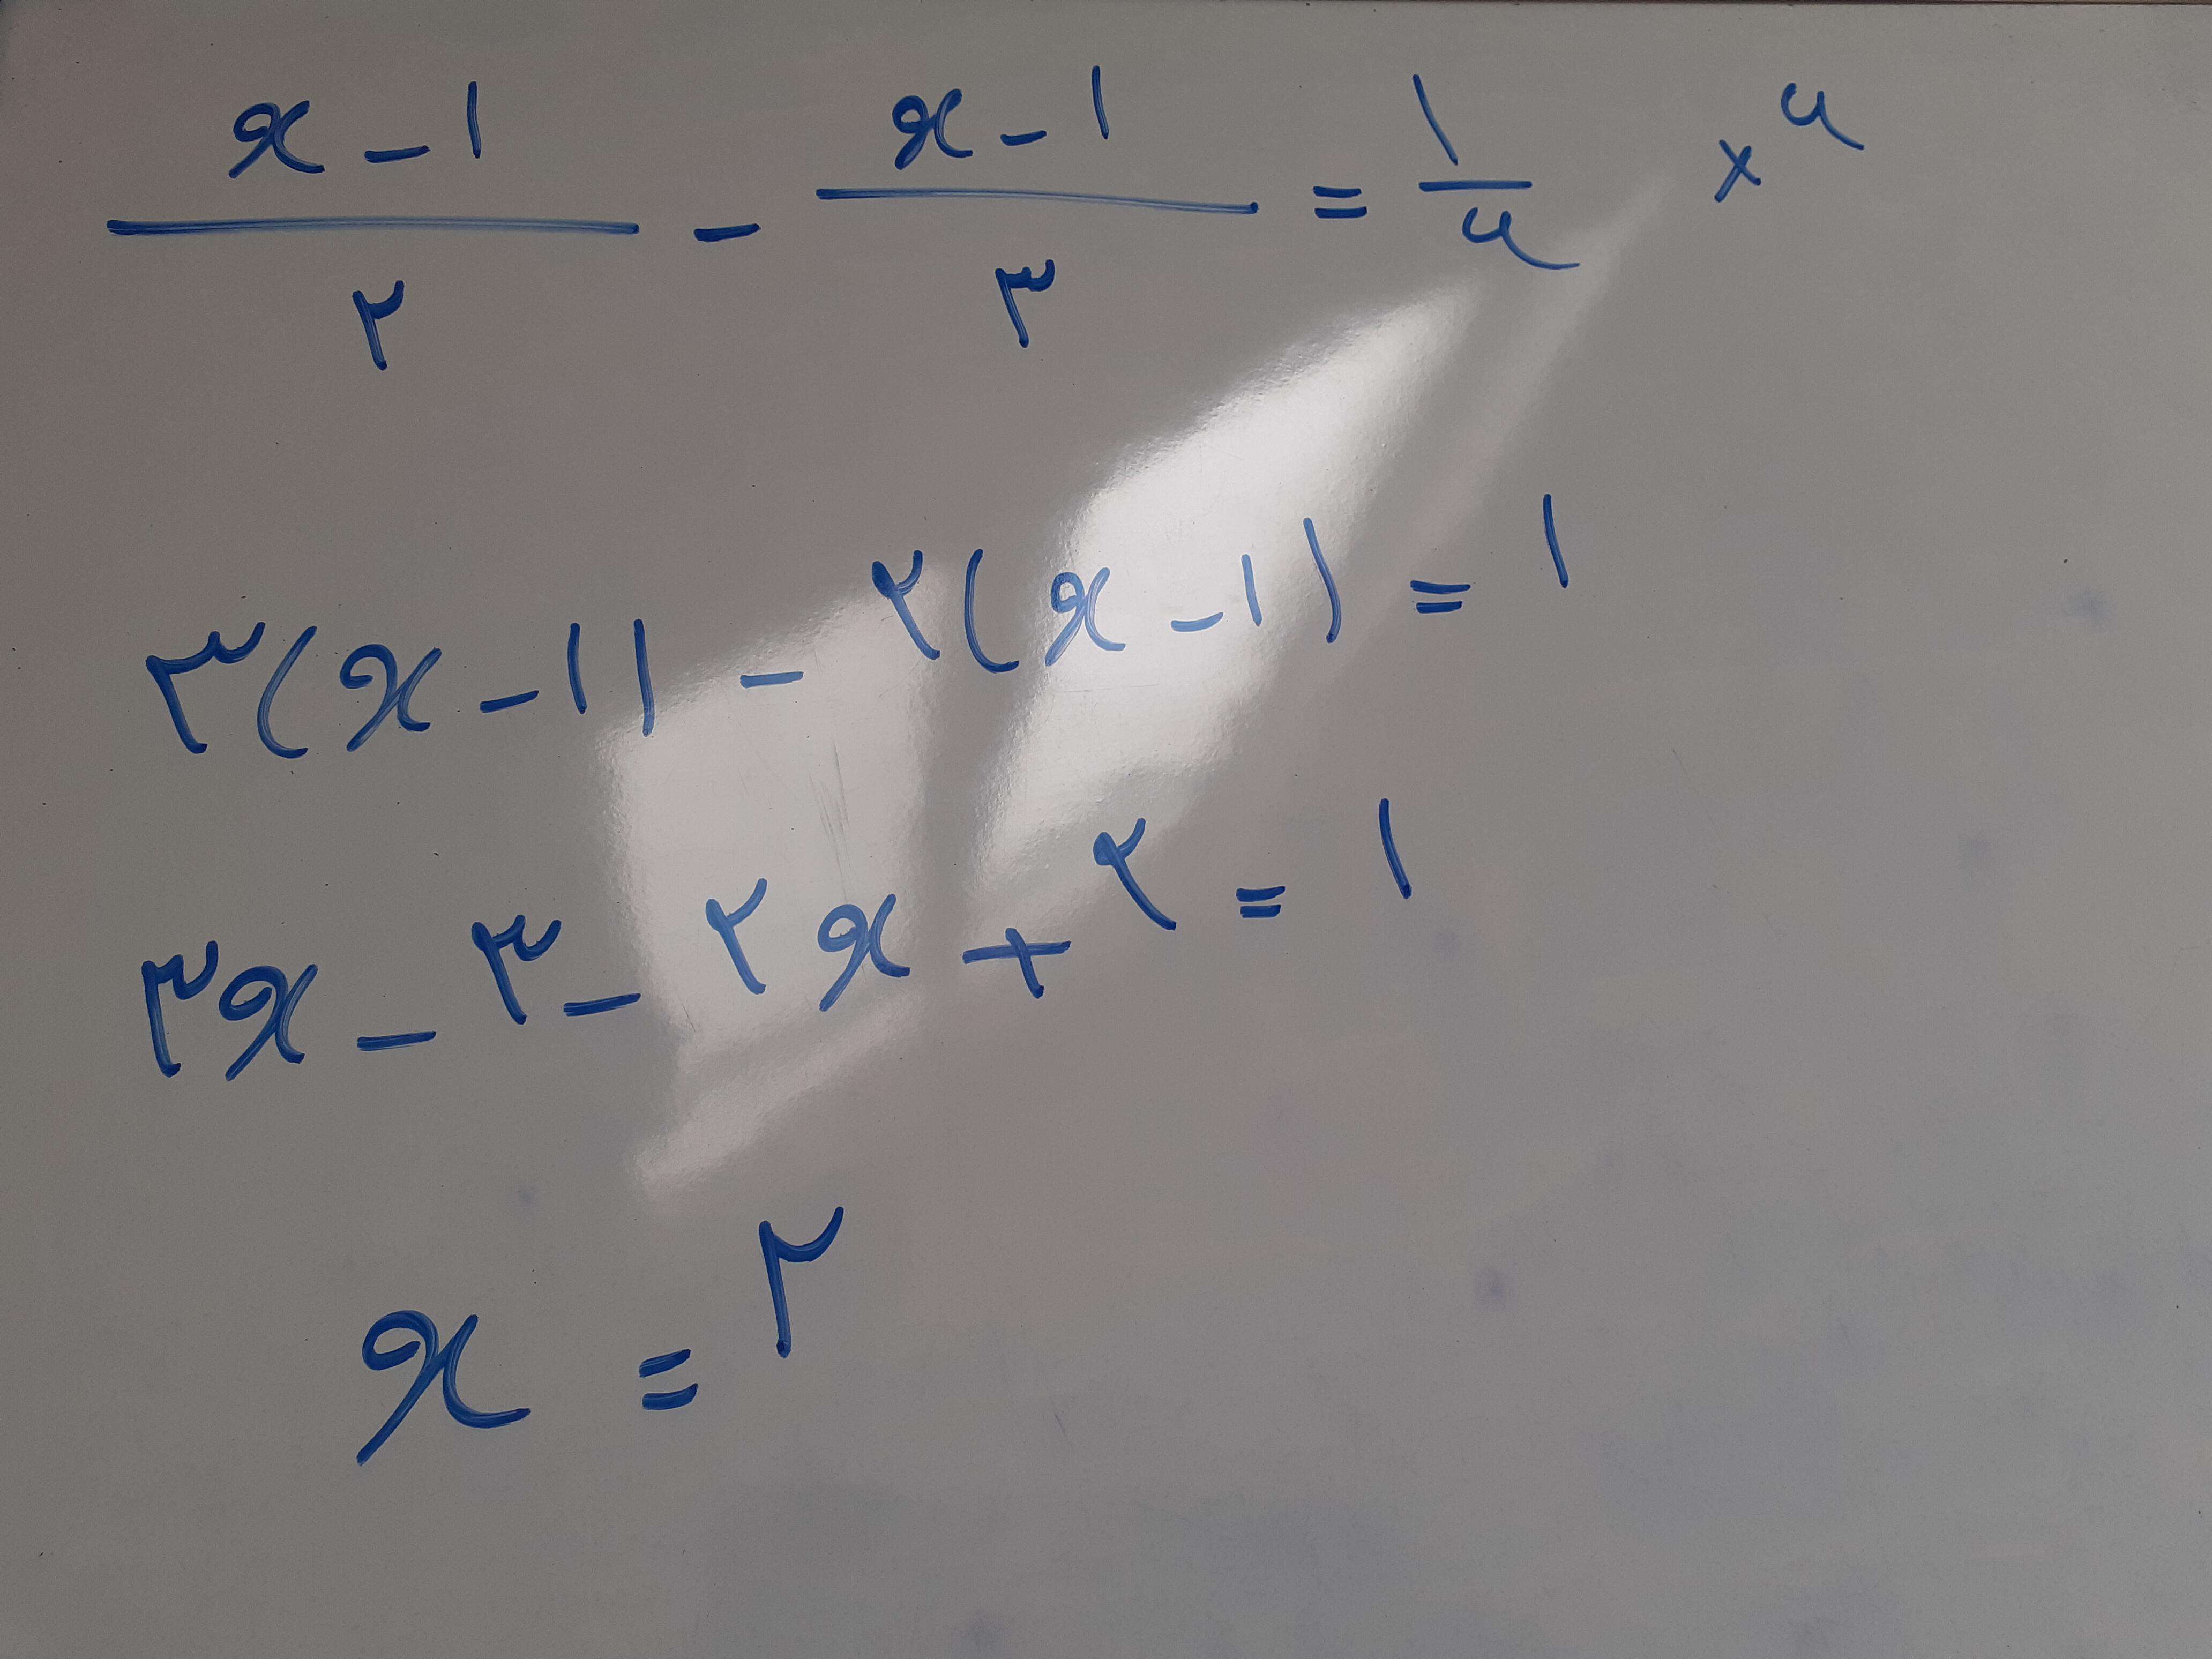 (x-۱)/۲ - (x-۱)/۳ = ۱/۶ ×۶
۳(x-۱) - ۲(x-۱) = ۱
۳x - ۳ - ۲x + ۲ = ۱
x = ۲